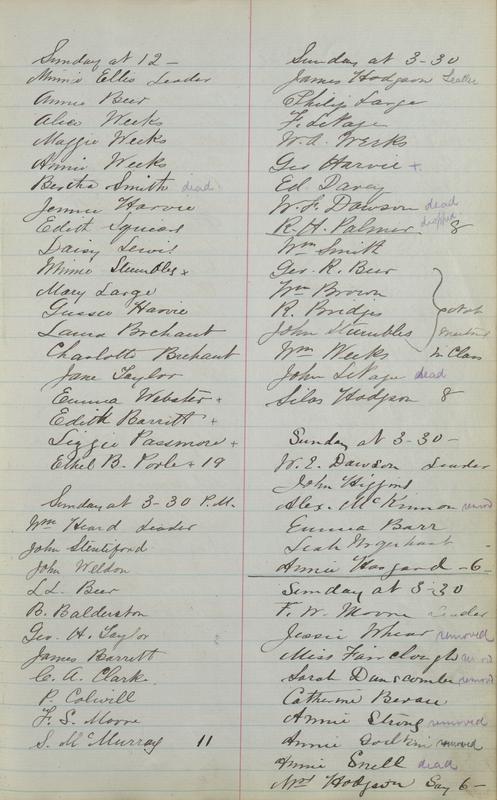 Sunday at 12 —
Minnie Ellis Leader
Annie Beer
Alice Weeks
Maggie Weeks
Annie Weeks
Bertha Smith dead
Jennie Harvie
Edith Squears
Daisy Lewis
Minnie Stumbles x
Mary Large
Gussie Harvie
Laura Brehaut
Charlotte Brehaut
Jane Taylor
Emma Webster +
Edith Barritt +
Lizzie Passmore +
Ethel B. Poole + 19
Sunday at 3-30 P.M.
Wm Heard Leader
John Stentiford
John Weldon
L.L. Beer
B. Balderston
Geo. H. Taylor
James Barritt
C. A. Clarke
P. Colwill
F. S. Moore
S. McMurray 11
Sunday at 3-30
James Hodgson Leader
Philip Large
F. LePage
W. A. Weeks
Geo Harvie +
Ed. Davey
W. F. Dawson dead
R. H. Palmer dropped 8
Wm Smith
Geo. R. Beer
Wm Brown
R. Bridges not
John Stumbles meeting
Wm Weeks in Class
John LePage dead
Silas Hodgson 8
Sunday at 3-30 —
W. E. Dawson Leader
John Higgins
Alex. McKinnon removd
Emma Barr
Leah Urquhart
Annie Hasgard — 6 —
Sunday at 3-30
F. W. Moore Leader
Jessie Whear removed
Miss Fairclough
Sarah Dunscombe removed
Catherine Bevan
Annie Strong removed
Annie removed
Annie Snell dead
Mrs Hodgson Say 6 —